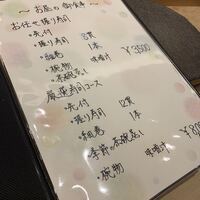 ～お昼の御食事～
お任せ握り寿司
・先付
・握り寿司 8貫
・細巻 1本
・椀物 味噌汁
・茶碗蒸し ¥3500
厳選寿司コース
・先付
・握り寿司 12貫
・細巻 1本
・季節の茶碗蒸し
・椀物 味噌汁